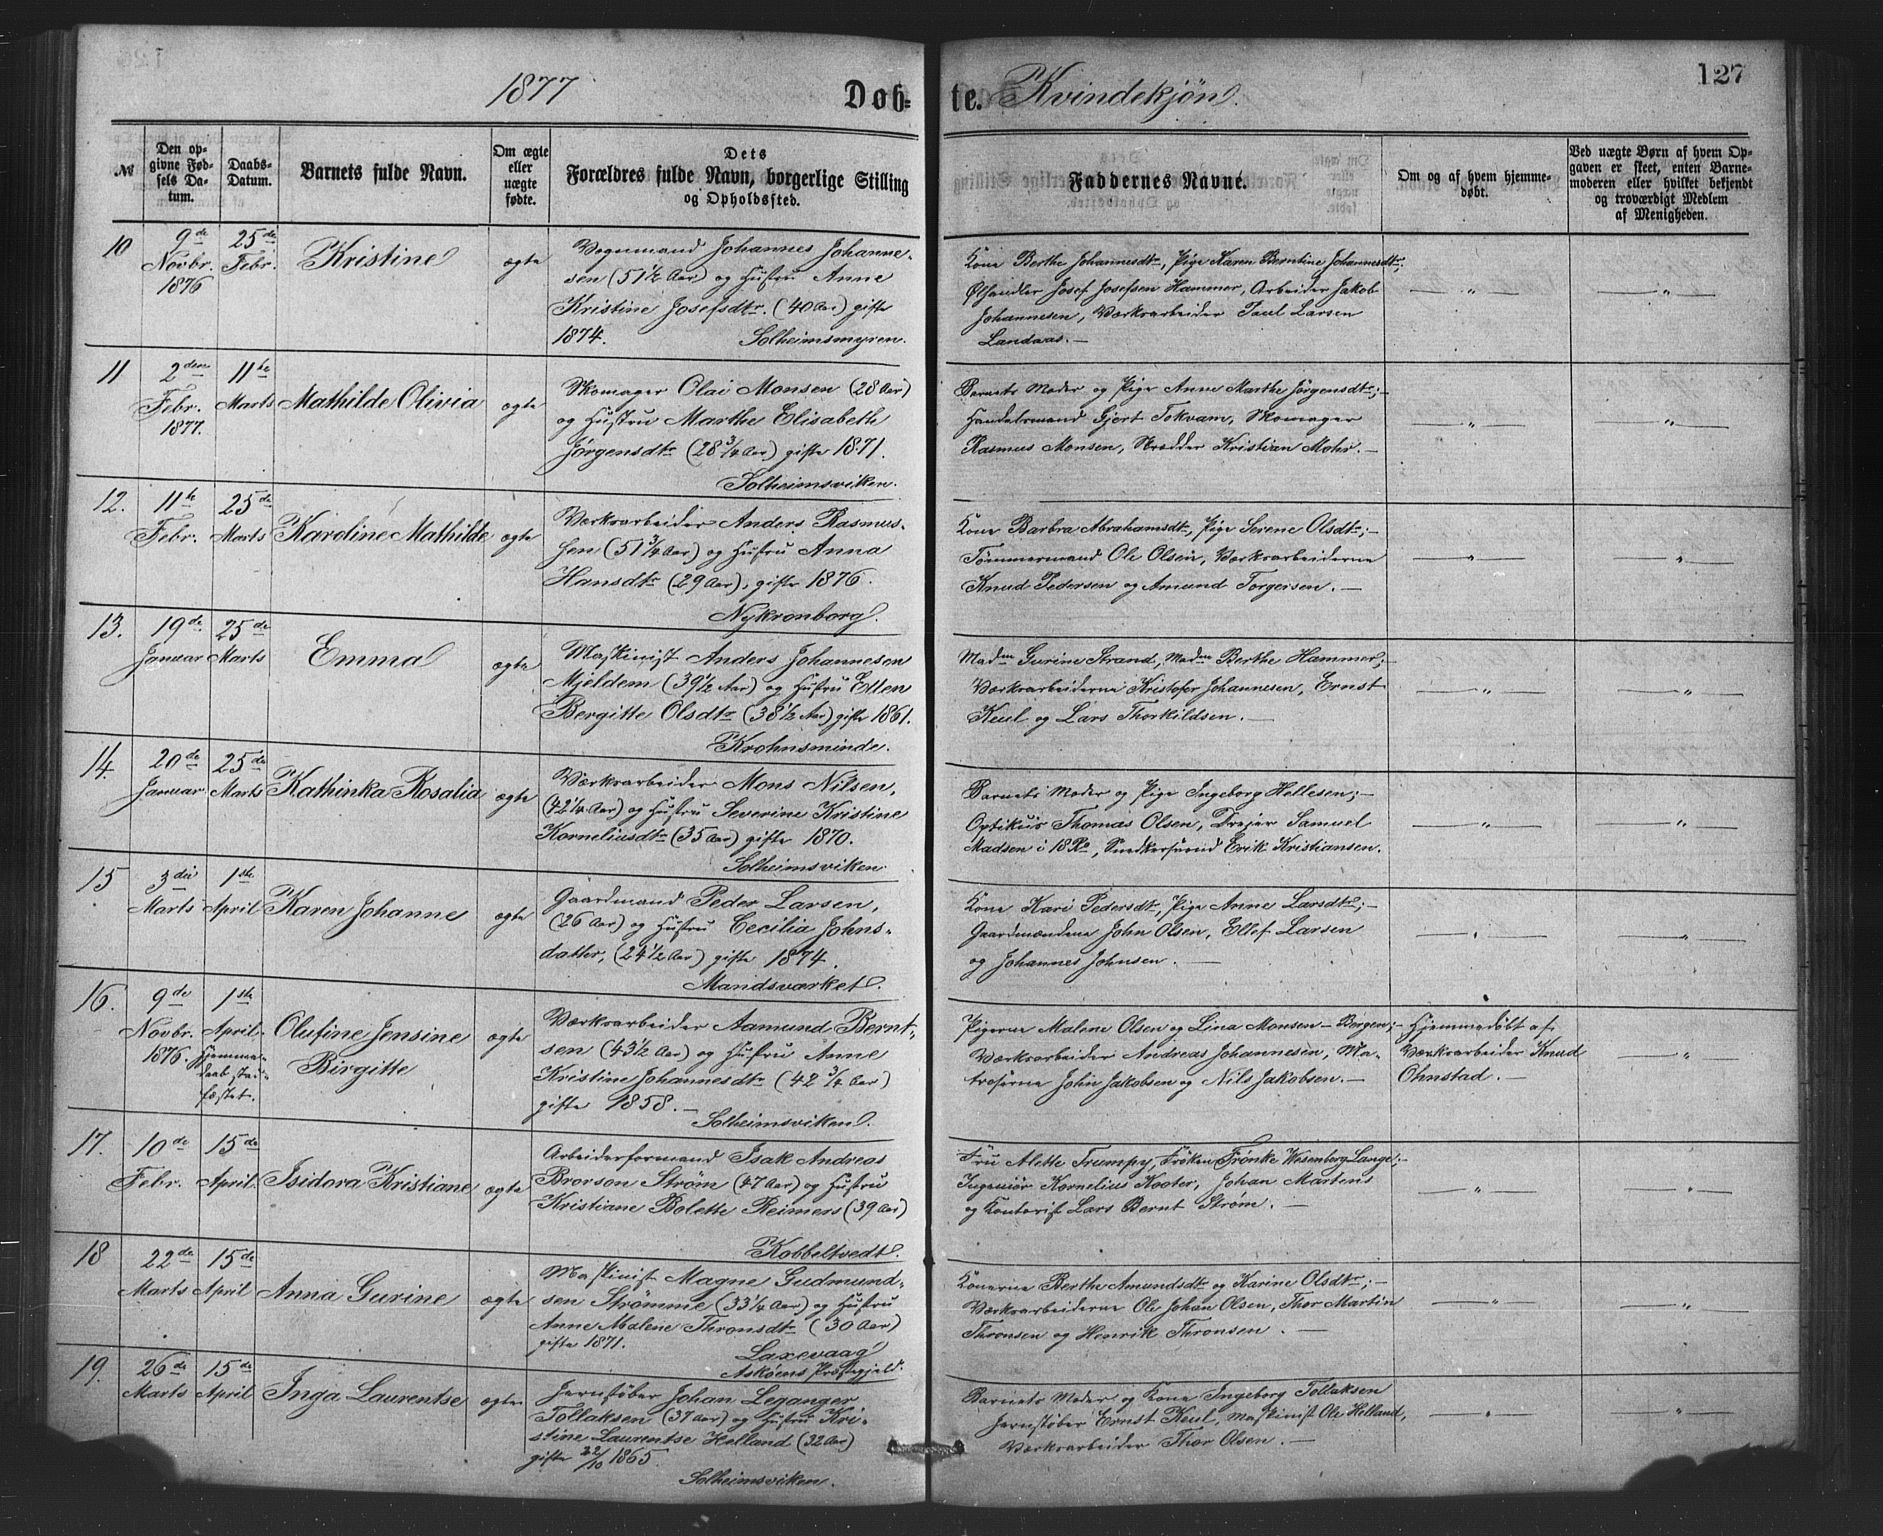 1877
Døb-
te.
Kvindekjøn.
127
№
Den op-
givne Fød-
sels Da-
tum.
Daabs-
Datum.
Barnets fulde Navn.
Om ægte
eller
uægte
fødte.
Dets
Forældres fulde Navn, borgerlige Stilling
og Opholdssted.
Faddernes Navne.
Om og af hvem hjemme-
døbt.
Ved uægte Børn af hvem Op-
gaven er skeet, enten Barne-
moderen eller hvilket bekjendt
og troværdigt Medlem
af Menigheden.
10
9de
Novbr.
1876
25de
Febr.
Kristine
ægte
Vognmand Johannes Johanne-
sen (51 1/2 Aar) og Hustru Anne
Kristine Josefsdtr. (40 Aar) gifte
1874. Solheimsmyren.
Kone Berthe Johannesdtr, Pige Karen Berntine Johannesdtr;
Ølhandler Josef Josefsen Hammer, Arbeider Jakob
Johannesen, Værksarbeider Paul Larsen
Landaas. —
— " —
— " —
11
2den
Febr.
1877.
11te
Marts
Mathilde Olivia
ægte
Skomager Olai Monsen (28 Aar)
og Hustru Marthe Elisabeth
Jørgensdtr (28 3/4 Aar) gifte 1871.
Solheimsviken.
Barnets Moder og Pige Anne Marthe Jørgensdtr; —
Handelsmand Gjert Tokvam, Skomager
Rasmus Monsen, Skrædder Kristian Mohr. —
— " —
— " —
12.
11te
Febr.
25de
Marts
Karoline Mathilde
ægte
Værksarbeider Anders Rasmus-
sen (51 3/4 Aar) og Hustru Anna
Hansdtr (29 Aar), gifte 1876.
Nykronborg.
Kone Barbra Abrahamsdtr, Pige Serene Olsdtr; —
Tømmermand Ole Olsen, Værksarbeiderne
Knud Pedersen og Amund Torgersen. —
— " —
— " —
13.
19de
Januar
25de
Marts
Emma
ægte
Maskinist Anders Johannesen
Mjeldem (39 1/2 Aar) og Hustru Ellen
Bergitte Olsdtr (38 1/2 Aar) gifte 1861.
Krohnsminde.
Madm Gurine Strand, Madm Berthe Hammer; —
Værksarbeiderne Kristofer Johannesen, Ernst
Keul og Lars Thorkildsen. —
— " —
— " —
14
20de
Januar
25de
Marts
Kathinka Rosalia
ægte
Værksarbeider Mons Nilsen,
(42 1/4 Aar) og Hustru Severine Kristine
Korneliusdtr (35 Aar) gifte 1870.
Solheimsviken
Barnets Moder og Pige Ingeborg Hellesen; —
Optikus Thomas Olsen, Drejer Samuel
Madsen i 18 Ro, Snedkersvend Erik Kristiansen.
— " —
— " —
15
3die
Marts
1ste
April
Karen Johanne
ægte
Gaardmand Peder Larsen,
(26 Aar) og Hustru Cecilia Johns-
datter, (24 1/2 Aar) gifte 1874.
Mandsværket.
Kone Kari Pedersdtr, Pige Anne Larsdtr; —
Gaardmændene John Olsen, Ellef Larsen
og Johannes Johnsen. —
— " —
— " —
16.
9de
Novbr.
1876.
1ste
April.
Hjemme-
daab stad-
fæstet.
Olufine Jensine
Birgitte
ægte
Værksarbeider Aamund Bernt-
sen (43 1/2 Aar) og Hustru Anne
Kristine Johannesdtr (42 3/4 Aar)
gifte 1858. —
Solheimsviken.
Pigerne Malene Olsen og Lina Monsen — Bergen; —
Værksarbeider Andreas Johannesen, Ma-
troserne John Jakobsen og Nils Jakobsen. —
Hjemmedøbt af
Værksarbeider Knud
Ohnstad. —
— " —
17.
10de
Febr.
15de
April.
Isidora Kristiane
ægte
Arbeiderformand Isak Andreas
Brorson Strøm (47 Aar) og Hustru
Kristiane Bolette Reimers (39 Aar)
Kobbeltvedt.
Fru Alette Trumpy, Frøken Frönke Wesenberg Lange; —
Ingeniør Kornelius Kooter, Johan Martens
og Kontorist Lars Bernt Strøm. —
— " —
— " —
18
22de
Marts
15de
April
Anna Gurine
ægte
Maskinist Magne Gudmund-
sen Strømme (33 1/4 Aar) og Hustru
Anne Malene Thronsdtr (30 Aar)
gifte 1871.
Laxevaag
Askøens Præstegjeld.
Konerne Berthe Amundsdtr og Karine Olsdtr; —
Værksarbeiderne Ole Johan Olsen, Thor Martin
Thronsen og Henrik Thronsen. —
— " —
— " —
19.
26de
Marts
15de
April
Inga Laurentse
ægte
Jernstøber Johan Leganger
Tollaksen (37 Aar) og Hustru Kri-
stine Laurentse Helland (32 Aar)
gifte 22/10 1865.
Solheimsviken.
Barnets Moder og Kone Ingeborg Tollaksen
Jernstøber Ernst Keul, Maskinist Ole Helland,
Værksarbeider Thor Olsen. —
— " —
— " —